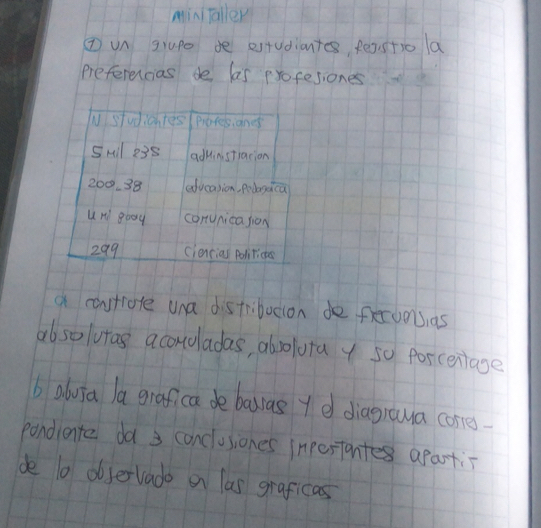 mini Taller
① un grupo de estudiantes, registro la
preferencias de las profesiones
N studiantes profesiones
5 mil 238 administracion
200_38 educasion-pedagogica
comunicasion
299 Ciencias politicas
a construte una distribucion de frecuensias
absolutas acomuladas, absoluta y su porcentage
b dibuja la grafica de barras y d diagrama corres-
pondiente da 3 conclusiones importantes apartir
de lo observado en las graficas